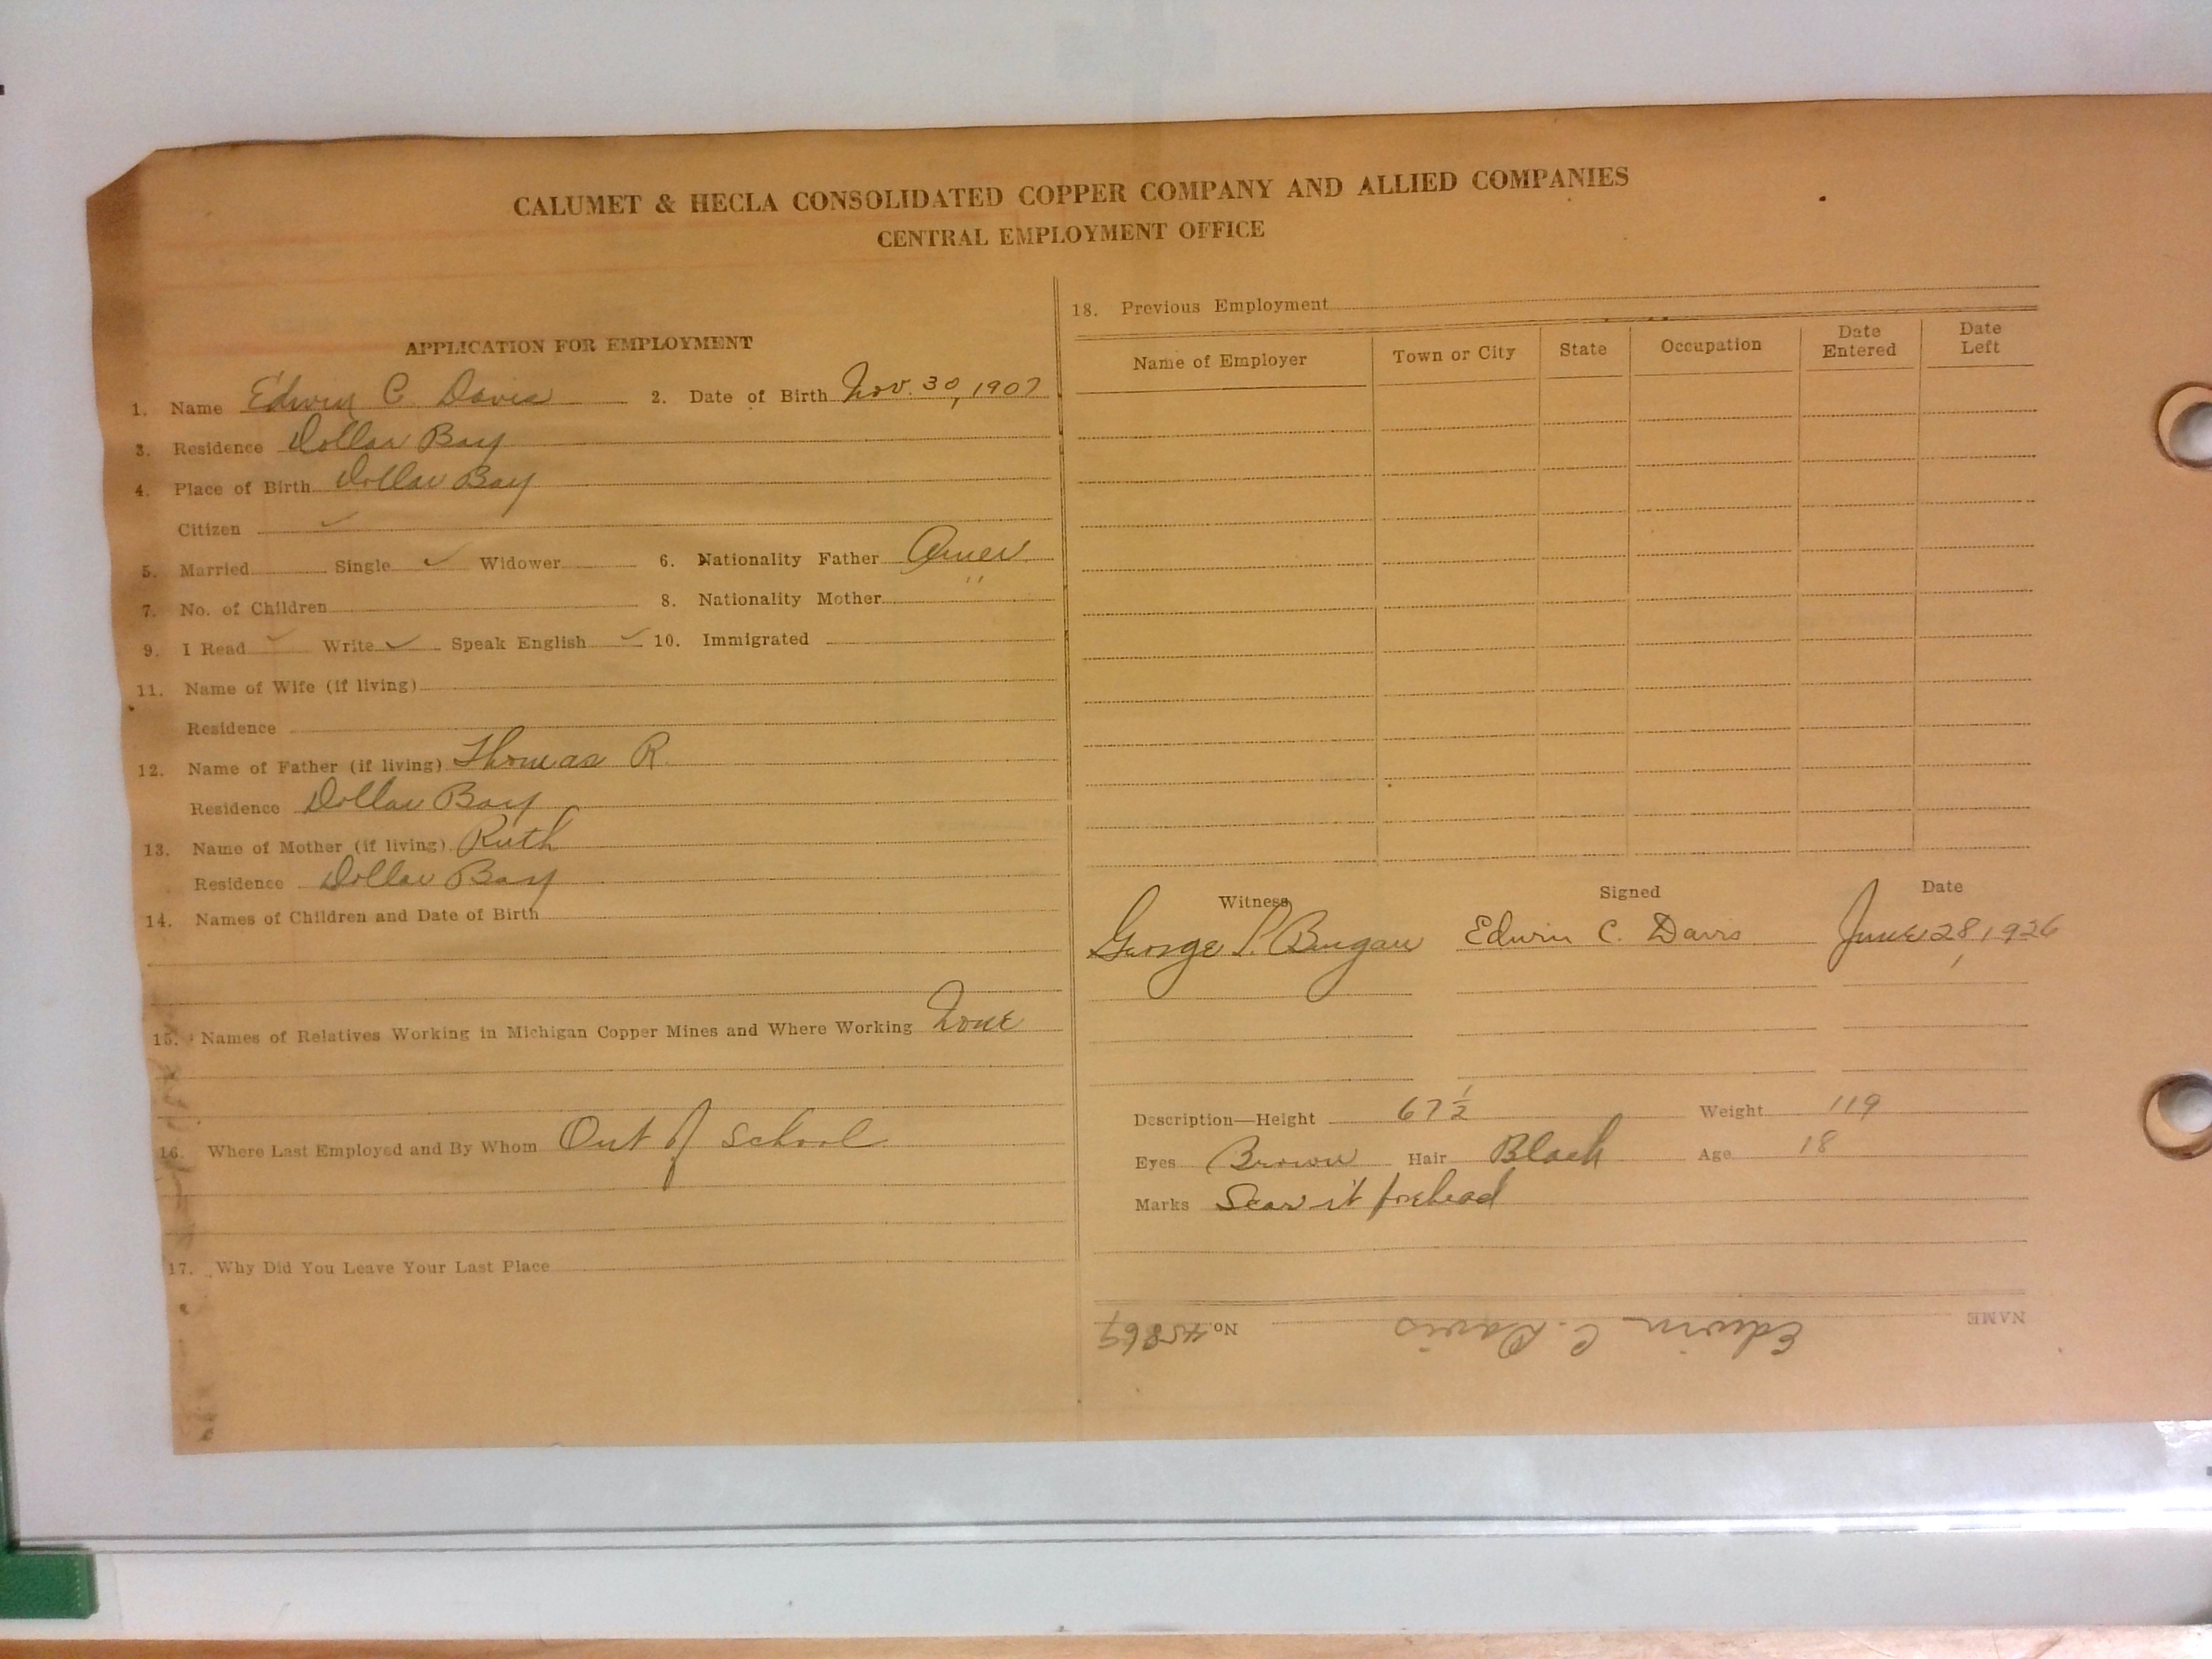 CALUMET & HECLA CONSOLIDATED COPPER COMPANY AND ALLIED COMPANIES
CENTRAL EMPLOYMENT OFFICE
APPLICATION FOR EMPLOYMENT
1. Name Edwin C Davis 2. Date of Birth Nov. 30, 1907
3. Residence Dollar Bay
4. Place of Birth Dollar Bay
Citizen ✓
5. Married Single ✓ Widower 6. Nationality Father Amer
7. No. of Children 8. Nationality Mother "
9. I Read ✓ Write ✓ Speak English ✓ 10. Immigrated
11. Name of Wife (if living)
Residence
12. Name of Father (if living) Thomas R.
Residence Dollar Bay
13. Name of Mother (if living) Ruth
Residence Dollar Bay
14. Names of Children and Date of Birth
15. Names of Relatives Working in Michigan Copper Mines and Where Working None
16. Where Last Employed and By Whom Out of School
17. Why Did You Leave Your Last Place
18. Previous Employment
Name of Employer Town or City State Occupation Date Entered Date Left
Witness Signed Date
George Edwin C. Davis June 28, 1926
Description—Height 67 1/2 Weight 119
Eyes Brown Hair Black Age 18
Marks Scar rt forehead
NAME Edwin C. Davis No. 45869